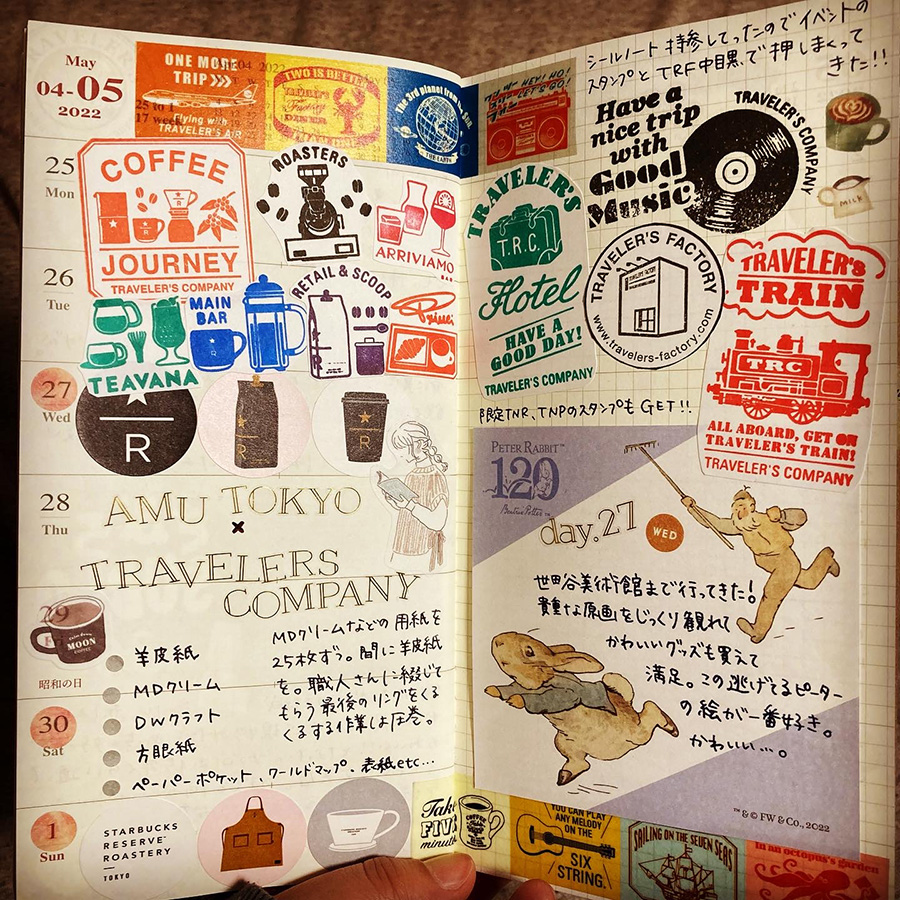 May
04-05
2022
ONE MORE
TRIP>>>
Flying with
TRAVELER'S AIR
TWO IS BETTER
Traveler's
Factory
DINER
The 3rd planet from the Sun
THE EARTH
25
Mon
COFFEE
R
JOURNEY
TRAVELER'S COMPANY
ROASTERS
ARRIVIAMO
26
Tue
TEAVANA
MAIN
BAR
RETAIL & SCOOP
R
Princi
27
Wed
R
28
Thu
AMU TOKYO
×
TRAVELERS
COMPANY
29
MOON
COFFEE
昭和の日
羊皮紙
MDクリーム
DWクラフト
方眼紙
ペーパーポケット、ワールドマップ、表紙etc…
MDクリームなどの用紙を
25枚ずつ。間に羊皮紙
を。職人さんに綴じて
もらう最後のリングをくる
くるする作業は圧巻。
30
Sat
1
Sun
STARBUCKS
RESERVE
ROASTERY
TOKYO
シールノート持参してったのでイベントの
スタンプとTRF中目黒で押しまくって
きた!!
HEY! HO!
LET'S GO!
Have a
nice trip
with
Good
Music
TRAVELER'S COMPANY
MILK
TRAVELER'S
T.R.C.
Hotel
HAVE A
GOOD DAY!
TRAVELER'S COMPANY
TRAVELER'S FACTORY
www.travelers-factory.com
TRAVELER'S
TRAIN
TRC
ALL ABOARD, GET ON
TRAVELER'S TRAIN!
TRAVELER'S COMPANY
限定TNR、TNPのスタンプもGET!!
PETER RABBIT™
120
Beatrix Potter™
day.27
WED
世田谷美術館まで行ってきた!
貴重な原画をじっくり観れて
かわいいグッズも買えて
満足。この逃げてるピーター
の絵が一番好き。
かわいい…。
™ & © FW & Co., 2022
Take
FIVE
minutes
YOU CAN PLAY
ANY MELODY
ON THE
SIX
STRING.
SAILING ON THE SEVEN SEAS
In an octopus's garden